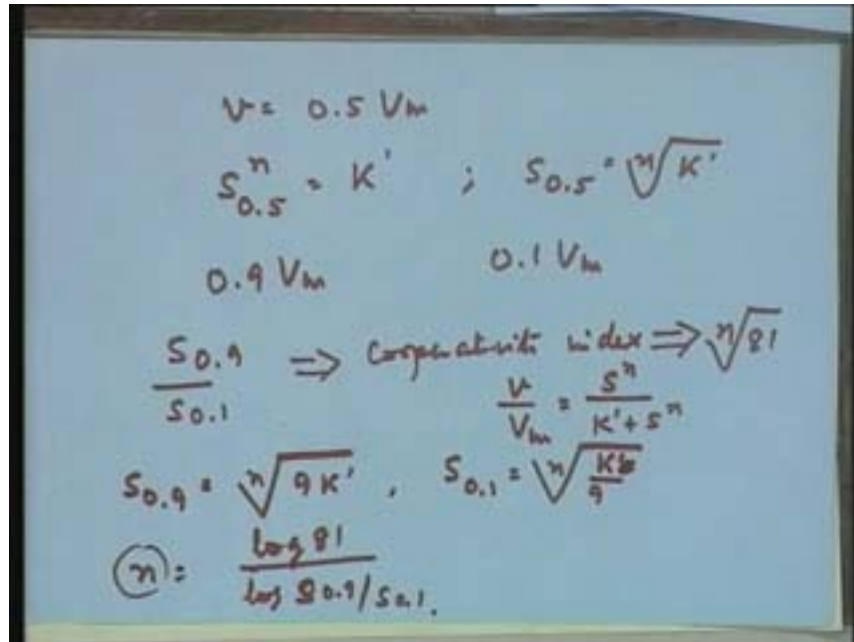 v = 0.5 Vm
S0.5^n = K' ; S0.5 = ⁿ√K'
0.9 Vm 0.1 Vm
S0.9/S0.1 ⇒ Cooperativity index ⇒ ⁿ√81
v/Vm = S^n/(K' + S^n)
S0.9 = ⁿ√9K' , S0.1 = ⁿ√K'/9
n = log 81/log S0.9/S0.1.